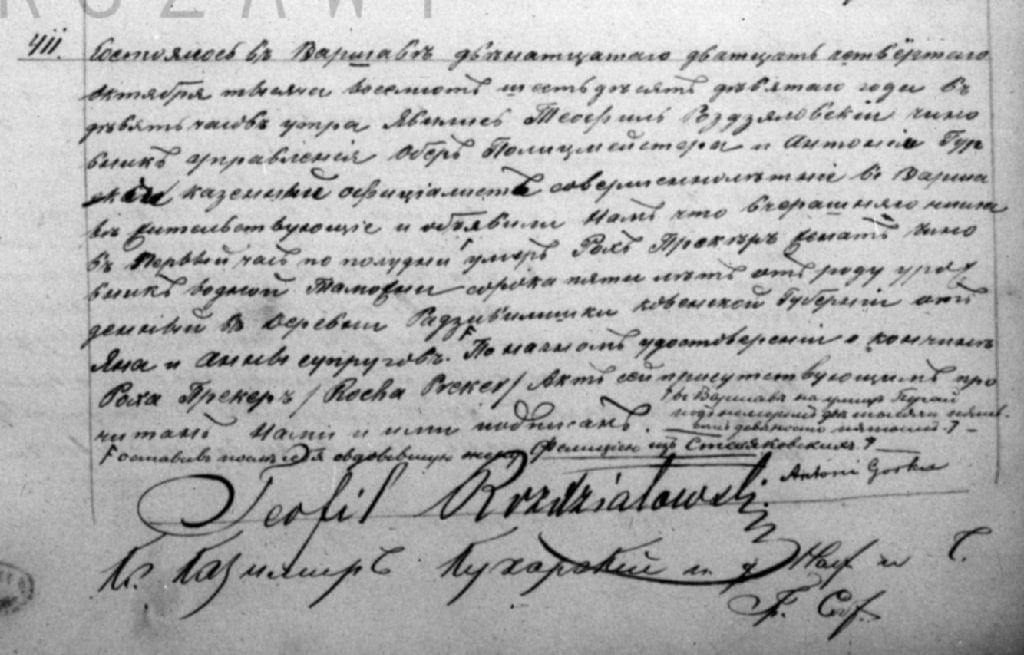 RSZAWY
411.
Состоялось въ Варшавѣ двѣнатцатаго дватцать четвёртаго
октября тысяча восемсотъ шестьдесятъ девятаго года въ
девять часовъ утра явились Теофиль Роздзяловскій чино
вникъ управленія Оберъ Полицмейстера и Антоній Гур
казенный официалистъ совершеннолѣтніе въ Варша
вѣ жительствующіе и объявили намъ что вчерашняго числа
въ первый часъ по полудни умеръ Рохъ Прекеръ женатъ чино
вникъ водной таможни сорока пяти лѣтъ отъ роду урож
денный въ деревни Радзивилишки Ковенской Губерніи отъ
Яна и Анны супруговъ. По начномъ удостовереніи о кончинѣ
Роха Прекеръ /Rocha Preker/ Актъ сей присутствующимъ про
въ Варшавѣ на улицѣ
подъ номеромъ два тысячи
девяносто пятымъ
читанъ нами и ими подписанъ.
оставивъ послѣ себя овдовѣвшую жену Фелицію изъ
Antoni Gorki
Teofil Rozdziałowski
Кс. Казимиръ Кухарскій